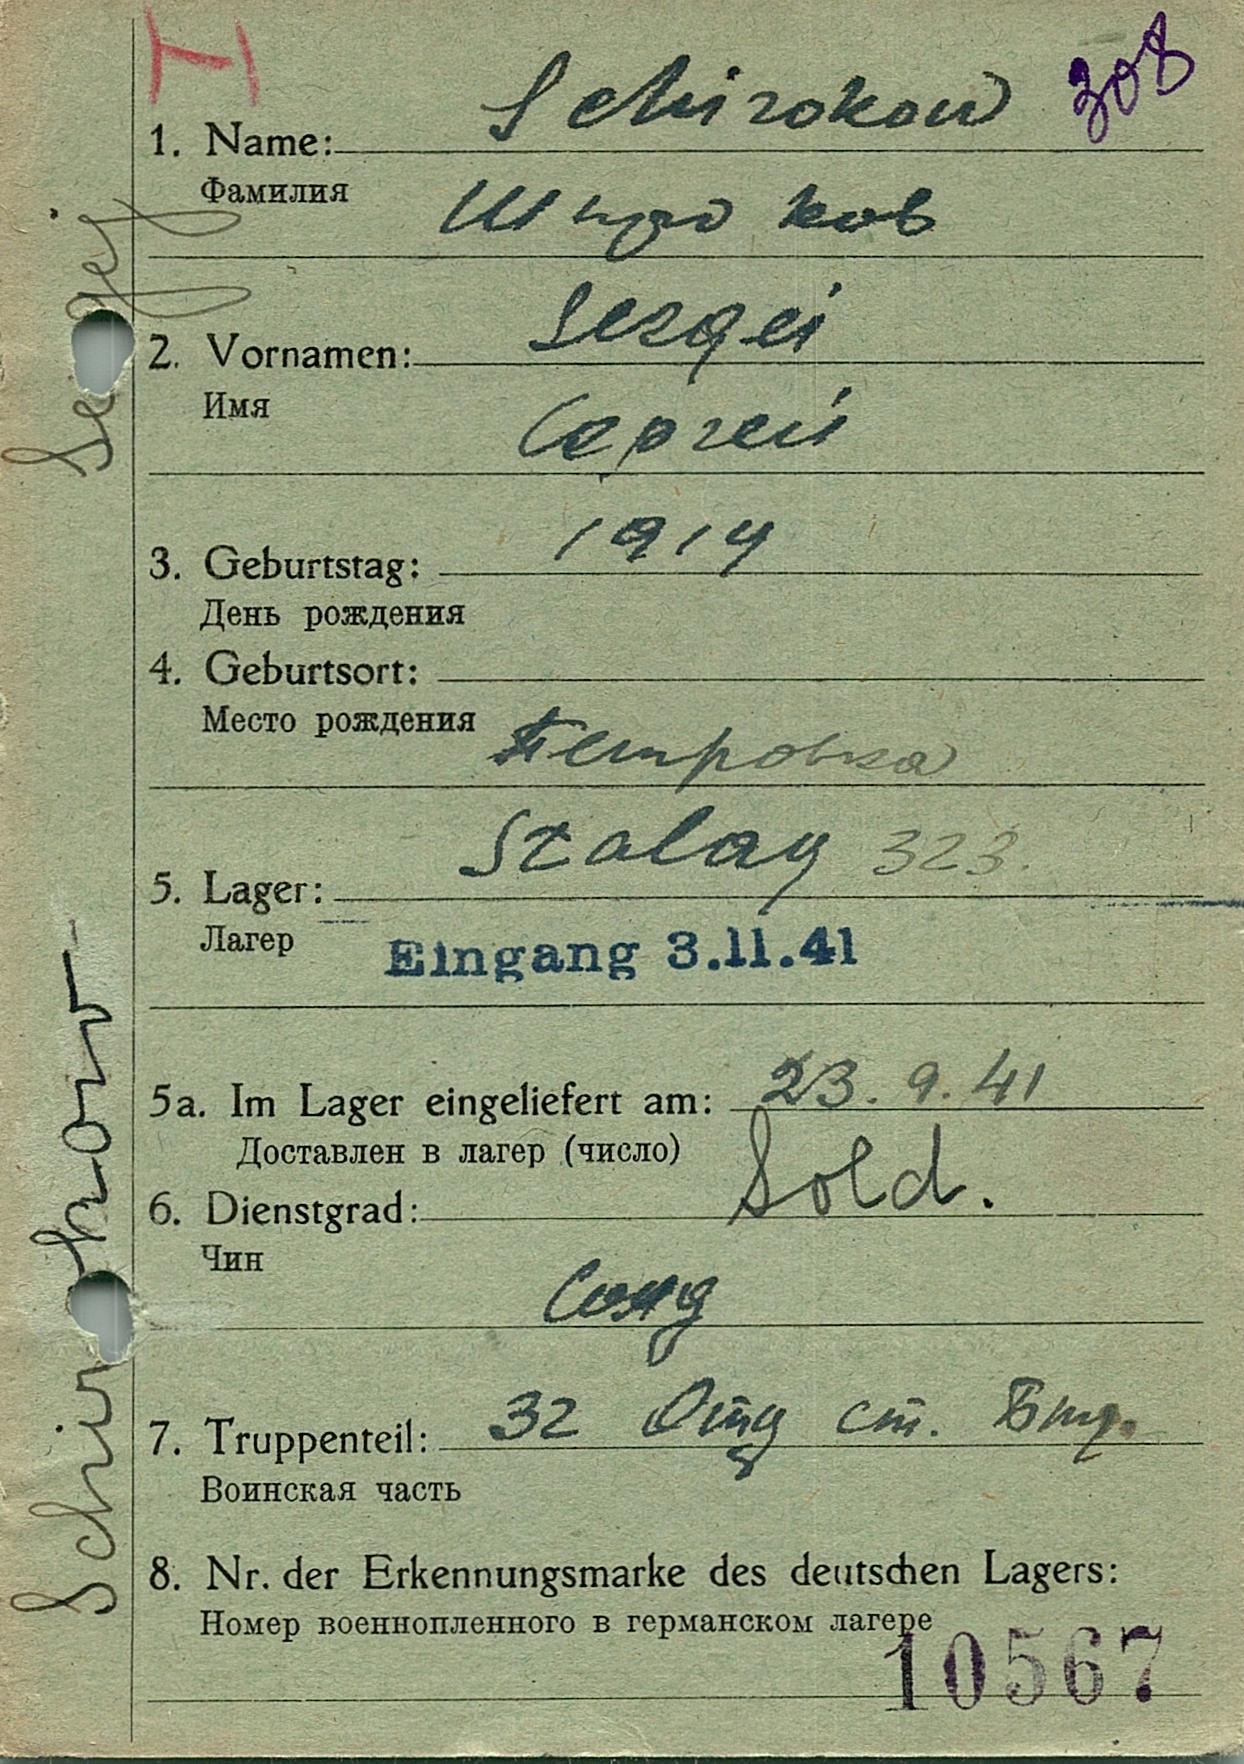 308
Schirokow
1. Name:
Фамилия
Широков
Sergei
2. Vornamen:
Имя
Сергей
1914
3. Geburtstag:
День рождения
4. Geburtsort:
Место рождения
Петровка
Stalag 323.
5. Lager:
Лагер
Eingang 3.11.41
5a. Im Lager eingeliefert am: 23.9.41
Доставлен в лагер (число)
6. Dienstgrad: Sold.
Чин
7. Truppenteil: 32 ст.
Воинская часть
8. Nr. der Erkennungsmarke des deutschen Lagers:
Номер военнопленного в германском лагере
10567
Schirokow Sergej